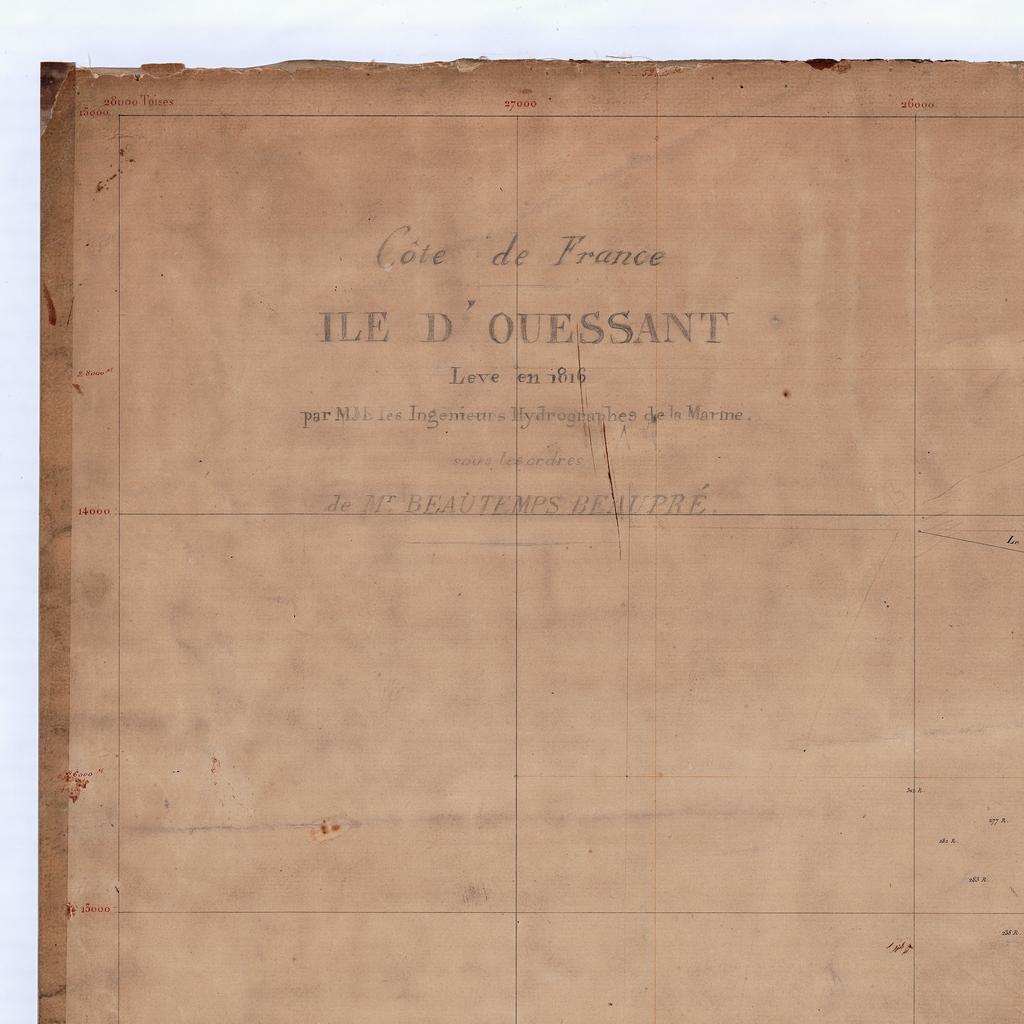 28000 Toises
27000
26000
15000
Côte de France
ILE D'OUESSANT
Levé en 1816
par MM. les Ingénieurs Hydrographes de la Marine.
sous les ordres
de Mr. BEAUTEMPS BEAUPRÉ.
14000
Le
277 R.
282 R.
283 R.
238 R.
13000